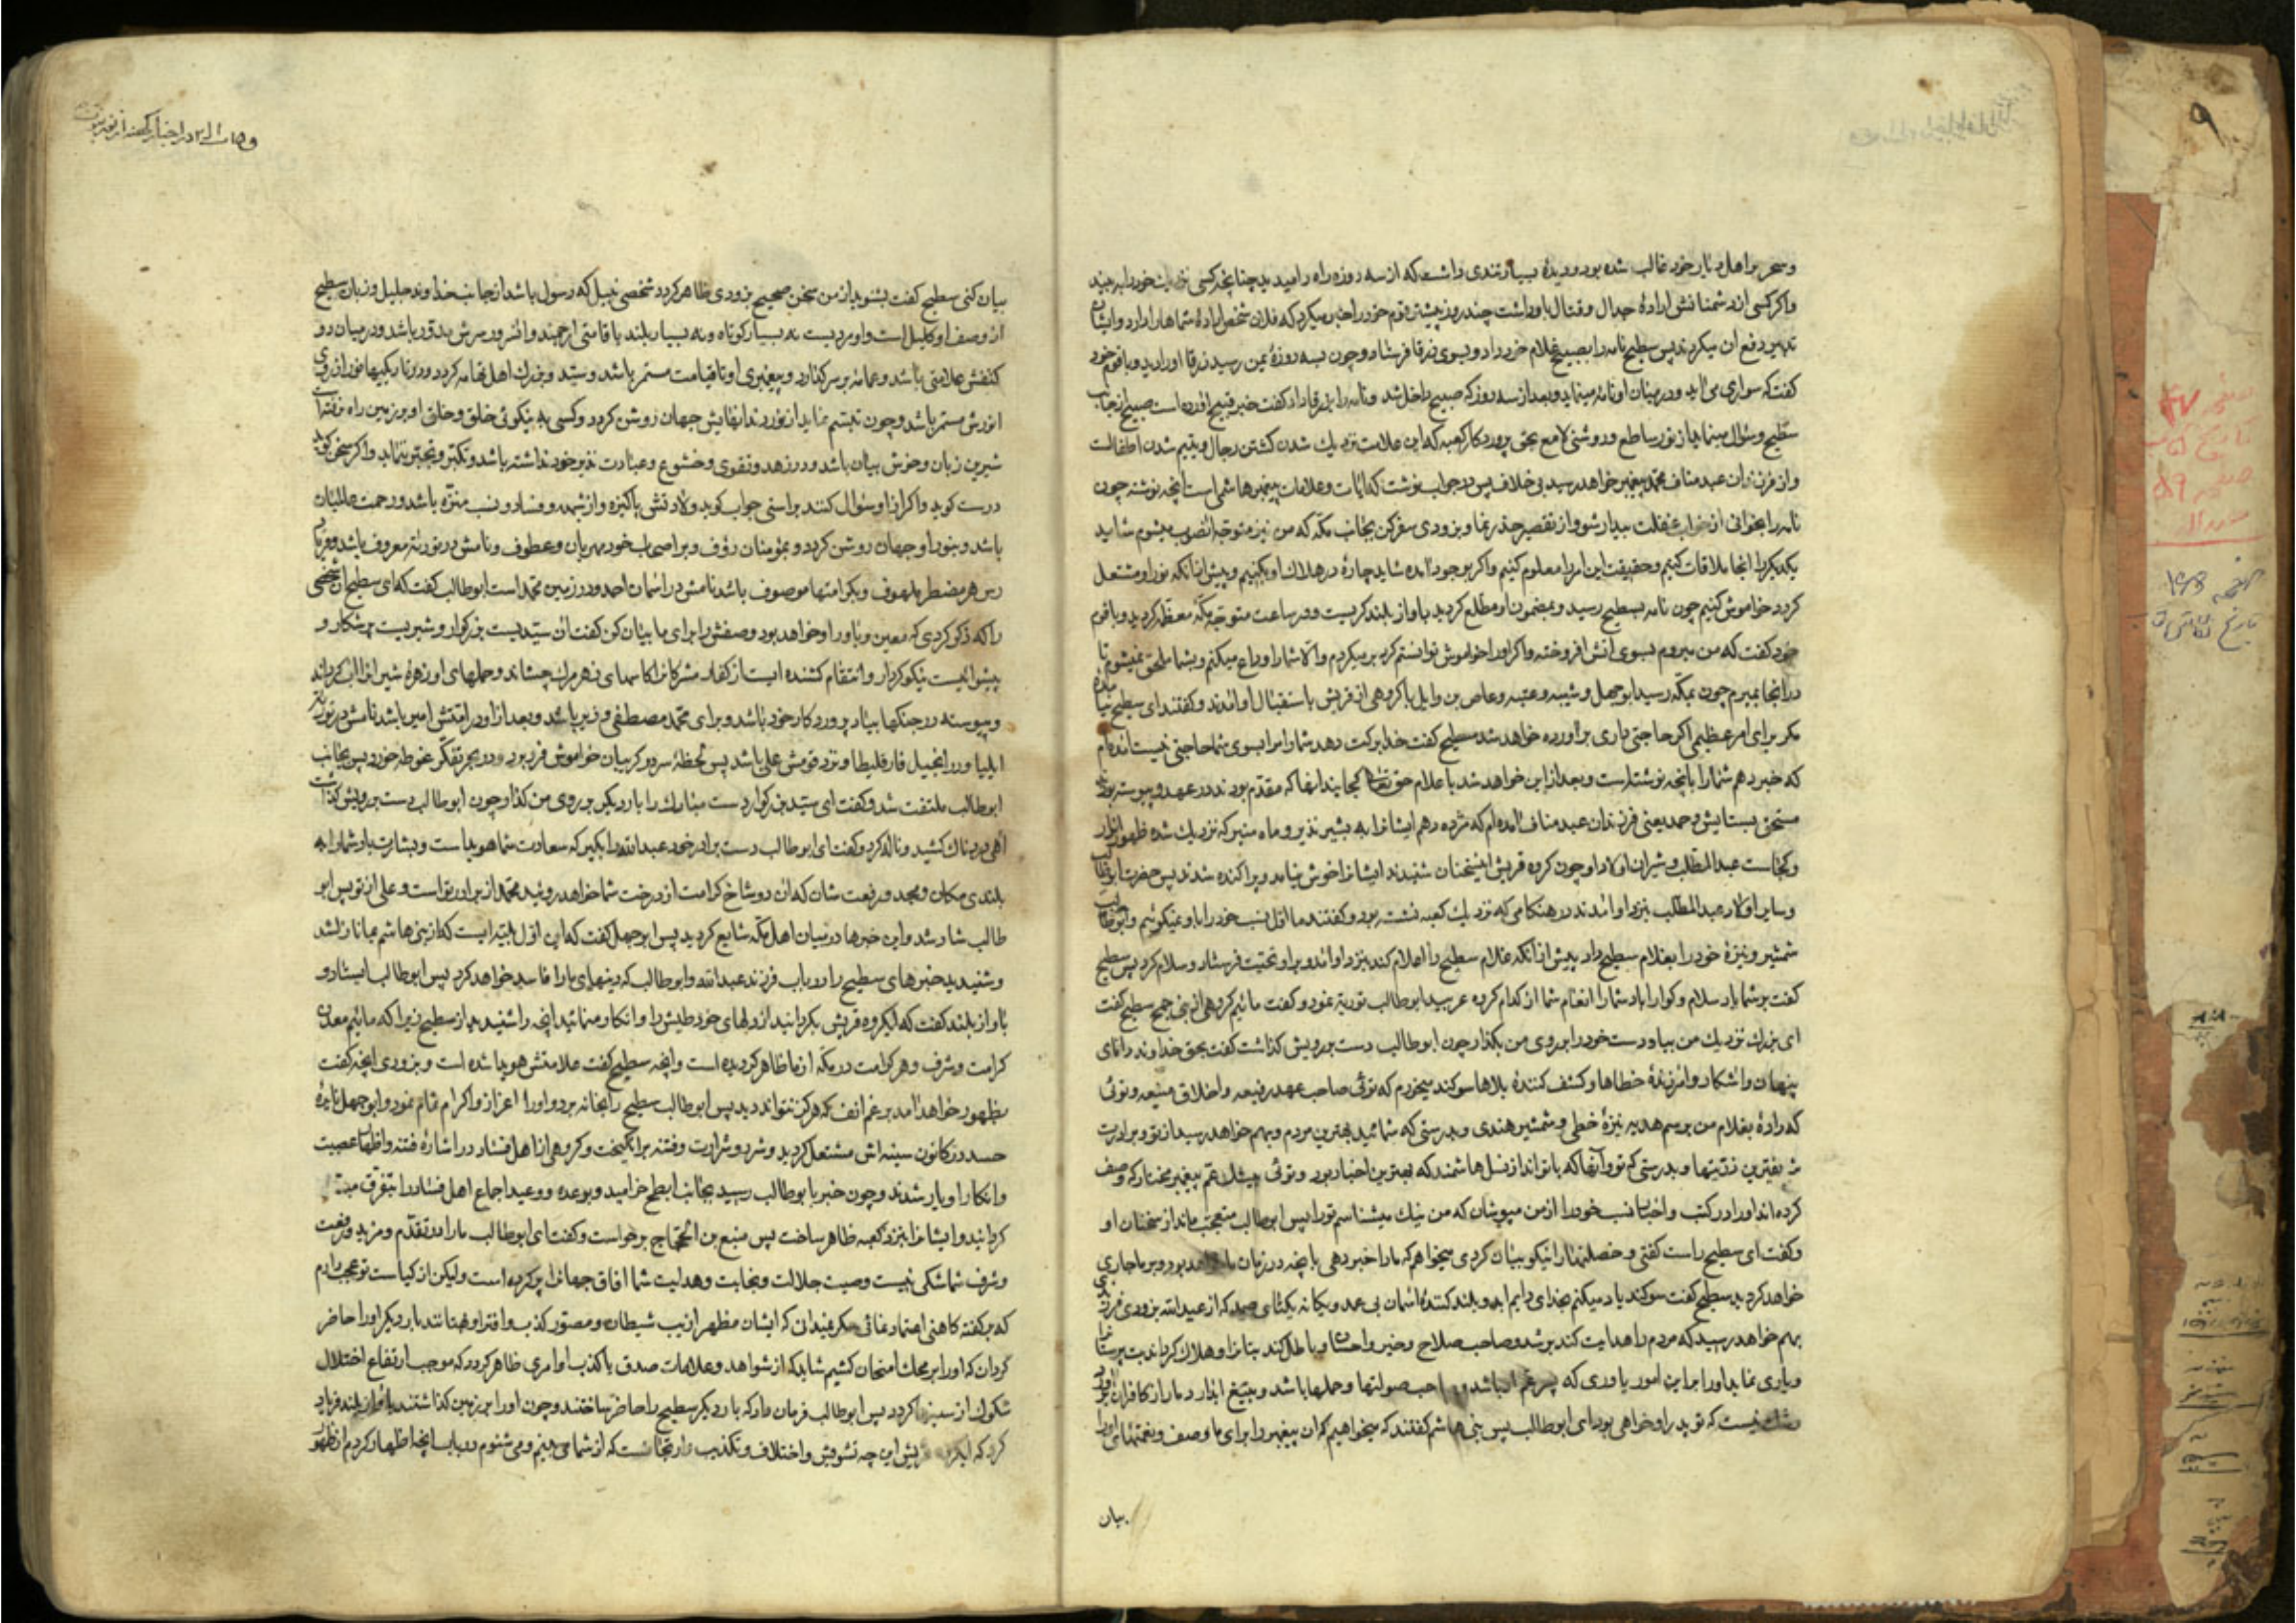 ۹
وسحر بر اهل دیار خود غالب شده بود و دیدهٔ بسیار تندی داشت که از سه روزه راه را میدید چنانچه کسی نزدیک خود را به بیند
واکر کسی از دشمنانش ارادهٔ جدال وقتال با او داشت چند روز پیشتر قوم خود را خبر میکرد که فلان شخص ارادهٔ شما دارد وایشان
تدبیر دفع ان میکردند پس سطیح نامه را بصبیح غلام خود داد وبسوی زرقا فرستاد وچون بسه روزهٔ یمن رسید زرقا او را دید وباقوم خود
کفت که سواری می اید ودر میان او نامه مینماید وبعد از سه روز که صبیح داخل شد ونامه را بزرقا داد کفت خبر قبیح اورده است صبیح از جانب
سطیح وسؤال مینماید از نور ساطع وروشنی لامع بحق پروردکار کعبه که این علامت نزدیک شدن کشتن رجال ویتیم شدن اطفالست
واز فرزندان عبد مناف محمد پیغمبر خواهد رسید بی خلاف پس در جواب نوشت که ایات وعلامات پیغمبر هاشمی است انچه نوشته چون
نامه را بخوانی از خواب غفلت بیدار شو واز تقصیر حذر نما وبزودی سفر کن بجانب مکه که من نیز متوجه انصوب میشوم شاید
یکدیکر را انجا ملاقات کنیم وحقیقت این امر را معلوم کنیم واکر بوجود امده شاید چارهٔ در هلاک او بکنیم وپیش از انکه نور او مشتعل
کردد خاموش کنیم چون نامه بسطیح رسید وبمضمون او مطلع کردید باواز بلند کریست ودر ساعت متوجه مکهٔ معظمه کردید وباقوم
خود کفت که من میروم بسوی اتش افروخته واکر او را خاموش توانستم کرد برمیکردم والا شما را وداع میکنم وبشما ملحق نمیشوم تا
در انجا بمیرم چون بمکه رسید ابو جهل وشیبه وعتبه وعاص بن وایل با کروهی از قریش باستقبال او امدند وکفتند ای سطیح نیامدهٔ
مکر برای امر عظیمی اکر حاجتی داری بر آورده خواهد شد سطیح کفت خدا برکت دهد شما را مرا بسوی شما حاجتی نیست امده ام
که خبر دهم شما را بانچه نوشتاست وبعد از این خواهد شد باعلام حق تعالی کجایند انها که مقدم بودند در عهد وپیوسته بودند
مستحق ستایش وحمد یعنی فرزندان عبد مناف امده ام که مژده دهم ایشانرا به بشیر نذیر وماه منیر که نزدیک شده ظهور انوار
وکجاست عبد المطلب وشیران اولاد او چون کروه قریش اینسخنان شنیدند ایشانرا خوش نیامد وپراکنده شدند پس حضرت ابوطالب
وسایر اولاد عبد المطلب بنزد او امدند در هنکامی که نزدیک کعبه نشسته بود وکفتند ما اول نسب خود را باو نمیکوئیم وابوطالب
شمشیر ونیزهٔ خود را بغلام سطیح داد پیش از آنکه غلام سطیح را اعلام کند بنزد او امد وبر او تحیت فرستاد وسلام کرد پس سطیح
کفت بر شما باد سلام وکوارا باد شما را انعام شما از کدام کروه عربید ابوطالب توریه نمود وکفت مائیم کروهی از بنی جمح سطیح کفت
ای بزرک نزدیک من بیا ودست خود را بر روی من بکذار چون ابوطالب دست برویش کذاشت کفت بحق خداوند دانای
پنهان واشکار وامرزندهٔ خطاها وکشف کنندهٔ بلاها سوکند میخورم که توئی صاحب عهد رفیعه واخلاق منیعه وتوئی
که دادهٔ بغلام من برسم هدیه نیزهٔ خطی وشمشیر هندی وبدرستی که شمائید بهترین مردم وبهم خواهد رسید از تو وبرادرت
بهترین ذریتها وبدرستی که تو وآنها که باتواند از نسل هاشمند که بهترین اخیار بود وتوئی بیشک عم پیغمبر مختار که وصف
کرده اند او را در کتب واخبار نسب خود را از من مپوشان که من نیک میشناسم تو را پس ابوطالب متعجب ماند از سخنان او
وکفت ای سطیح راست کفتی وخصلتها را نیکو بیان کردی میخواهم که ما را خبر دهی بانچه در زمان ما خواهد بود وبر ما جاری
خواهد کردید سطیح کفت سوکند یاد میکنم بخدای دایم ابد وبلند کنندهٔ اسمان بی عمد ویکانه یکتای صمد که از عبد الله بزودی فرزندی
بهم خواهد رسید که مردم را هدایت کند برشد وصاحب صلاح وخیر واحسان وباطل کند بتانرا وهلاک کرداند بت پرستانرا
ویاری نماید او را بر این امور یاوری که پسر عم او باشد وصاحب صولتها وحملها باشد وبتیغ ابدار دمار از کافران برارد
وشک نیست که تو پدر او خواهی بود ای ابوطالب پس بنی هاشم کفتند که میخواهیم که ان پیغمبر را برای ما وصف ونعتهای او را
بیان
بیان کنی سطیح کفت بشنوید از من سخن صحیح بزودی ظاهر کردد شخصی نبیل که رسول باشد از جانب خداوند جلیل وزبان سطیح
از وصف او کلیل است واو مردیست نه بسیار کوتاه ونه بسیار بلند با قامتی ارجمند واثر ور سرش مدور باشد ودر میان دو
کتفش علامتی باشد وعمامه بر سر کذارد وپیغمبری او تا قیامت مستمر باشد وسید وبزرک اهل تهامه کردد ودر تاریکیها نور از روی
انورش مستمر باشد وچون تبسم نماید از نور دندانهایش جهان روشن کردد وکسی به نیکوئی خلق وخلق او بر زمین راه نرفته است
شیرین زبان وخوش بیان باشد ودر زهد وتقوی وخشوع وعبادت نذیر خود نداشته باشد وتکبر وتجبر ننماید واکر سخن کوید
درست کوید واکر از او سؤال کنند براستی جواب کوید ولادتش پاکیزه واز شبهه وفساد ونسب منزه باشد ورحمت عالمیان
باشد وبنور او جهان روشن کردد وبمؤمنان رؤف وبر اصحاب خود مهربان وعطوف ونامش در توریة معروف باشد وفریاد
رس هر مضطر ملهوف وبکرامتها موصوف باشد نامش در اسمان احمد ودر زمین محمد است ابوطالب کفت که ای سطیح ان شخصی
را که ذکر کردی که معین ویاور او خواهد بود وصفش را برای ما بیان کن کفت ان سیدیست بزرکوار وشیریست پر شکار و
پیشوائیست نیکو کردار وانتقام کشنده ایست از کفار مشرکانرا کاسهای زهر مرک چشاند وحملهای او زهرهٔ شیرانرا آب کرداند
وپیوسته در جنکها بیاد پروردکار خود باشد وبرای محمد مصطفی وزیر باشد وبعد از او در امتش امیر باشد نامش در توریة
ایلیا ودر انجیل فارقلیطا ونزد قومش علی باشد پس لحظهٔ سر در کریبان خواموش فرو برد ودر بحر تفکر غوطه خورد پس بجانب
ابوطالب ملتفت شد وکفت ای سید بزرکوار دست مبارک را بار دیکر بر روی من کذار چون ابوطالب دست برویش کذاشت
آهی دردناک کشید وناله کرد وکفت ای ابوطالب دست برادر خود عبد الله را بکیر که سعادت شما هویداست وبشارت باد شما را به
بلندی مکان ومجد ورفعت شان که ان دو شاخ کرامت از درخت شما خواهد روئید محمد از برادر تو است وعلی از تو پس ابو
طالب شاد شد واین خبرها در میان اهل مکه شایع کردید پس ابو جهل کفت که این اول بلیه ایست که از بنی هاشم بما نازل شد
وشنیدید خبرهای سطیح را در باب فرزند عبد الله وابوطالب که دینهای ما را فاسد خواهد کرد پس ابوطالب ایستاد و
باواز بلند کفت که ایکروه قریش بکردانید از دلهای خود طیش را وانکار منمائید انچه را شنیدید از سطیح زیرا که مائیم معدن
کرامت وشرف وهر کرامت در مکه از ما ظاهر کردیده است وانچه سطیح کفت علامتش هویدا شده است وبزودی انچه کفت
بظهور خواهد امد برغم انف که هرکز نتواند دید پس ابوطالب سطیح را بخانه برد واو را اعزاز واکرام تمام نمود وابو جهل نایرهٔ
حسد در کانون سینه اش مشتعل کردید وشر وشرارت وفتنه برانکیخت وکروهی از اهل فساد در اشارهٔ فتنه واظهار عصبیت
وانکار او یار شدند وچون خبر بابوطالب رسید بجانب ابطح خرامید وبوعده ووعید اجماع اهل فساد را بتفرق مبدل
کردانید وایشانرا بنزد کعبه ظاهر ساخت پس منبع بن الحجاج برخواست وکفت ای ابوطالب ما را در تقدم ومزید رفعت
وشرف شما شکی نیست وصیت جلالت ونجابت وهدایت شما افاق جهانرا پر کرده است ولیکن از کیاست تو عجب دارم
که بر کفته کاهنی اعتماد نمائی مکر نمیدانی که ایشان مظهر اریب شیطان ومصدر کذب وافترا وبهتانند بار دیکر او را حاضر
کردان که او را بر محک امتحان کشیم شاید که از شواهد وعلامات صدق یا کذب او امری ظاهر کردد که موجب ارتفاع اختلال
شکوک از سینها کردد پس ابوطالب فرمان داد که بار دیکر سطیح را حاضر ساختند وچون او را بر زمین کذاشتند باواز بلند فریاد
کرد که ایکروه قریش این چه تشویش واختلاف وتکذیب وارتجاست که از شما می بینم ومی شنوم در باب انچه اظهار کردم از ظهور